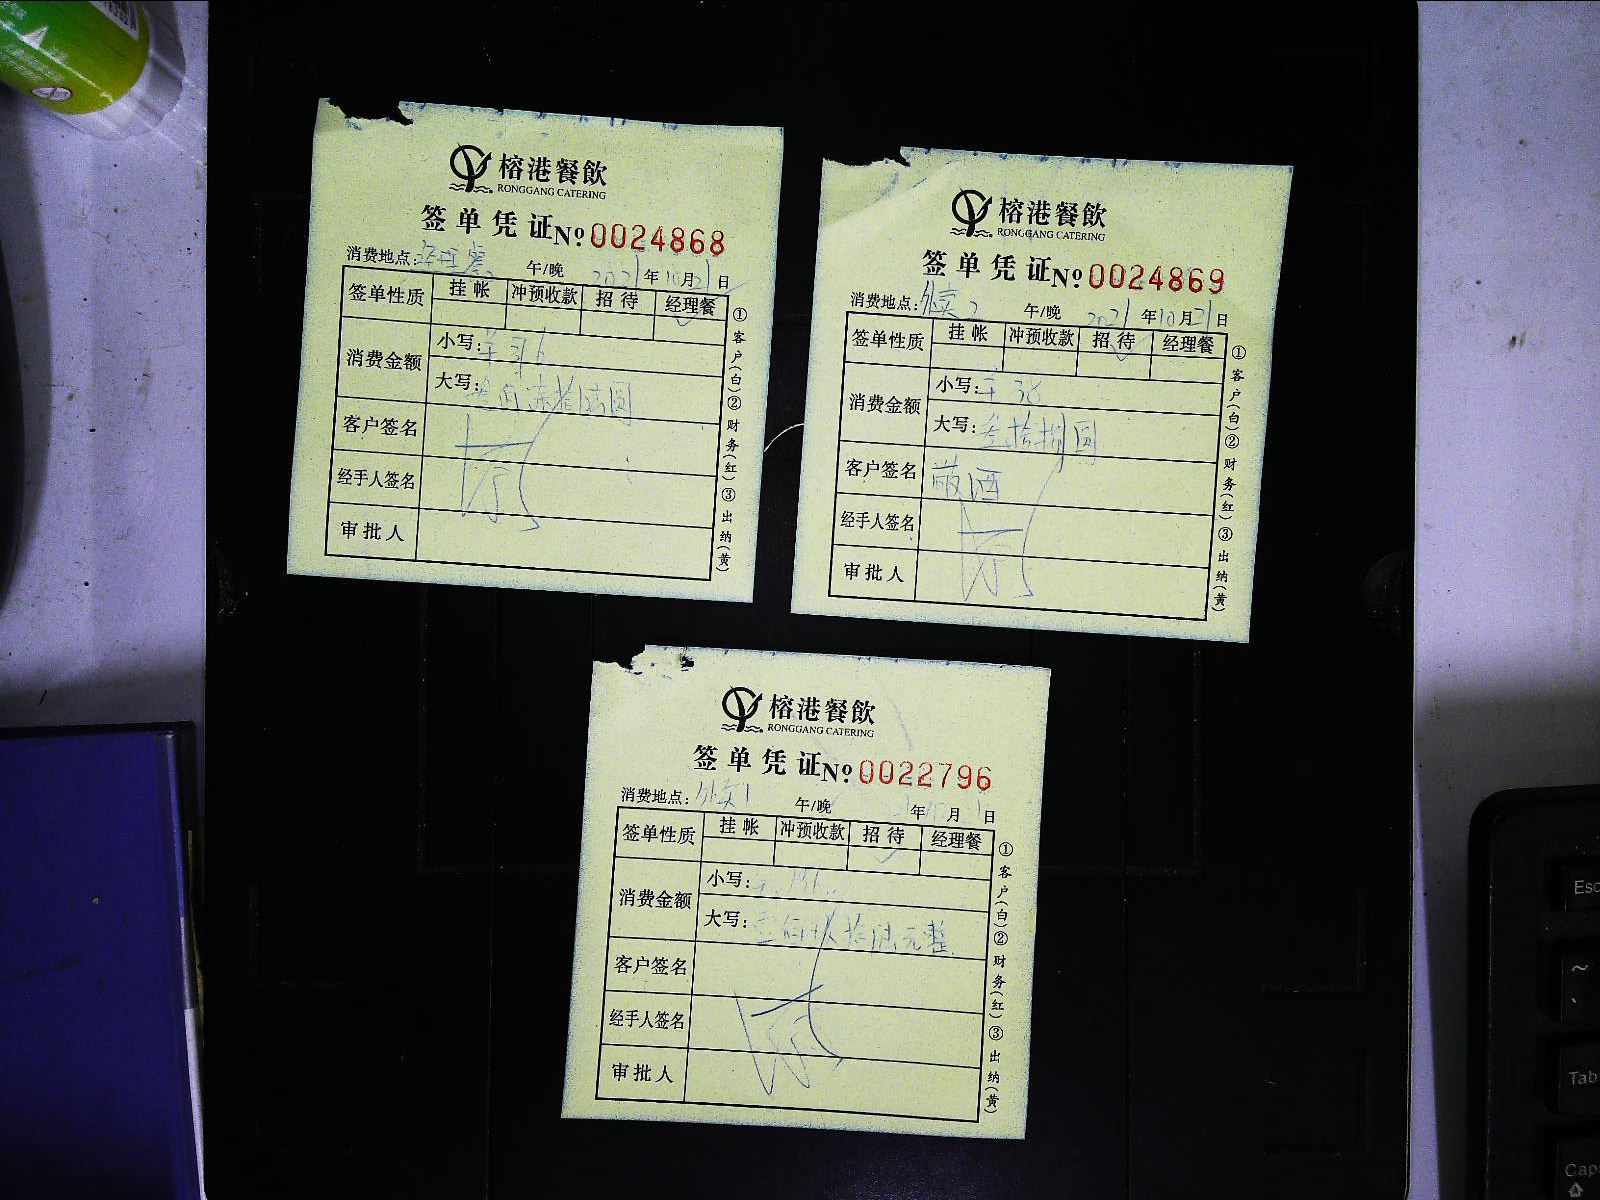 榕港餐飲
RONGGANG CATERING
签单凭证 Nº 0024868
消费地点: 午/晚 2021年10月21日
签单性质 挂帐 冲预收款 招待 经理餐
消费金额 小写:
大写:
客户签名
经手人签名
审批人
①客户(白)②财务(红)③出纳(黄)
榕港餐飲
RONGGANG CATERING
签单凭证 Nº 0024869
消费地点: 外卖2 午/晚 2021年10月21日
签单性质 挂帐 冲预收款 招待 经理餐
消费金额 小写: 38
大写: 叁拾捌圆
客户签名 敬酒
经手人签名
审批人
①客户(白)②财务(红)③出纳(黄)
榕港餐飲
RONGGANG CATERING
签单凭证 Nº 0022796
消费地点: 外卖1 午/晚 年 月 日
签单性质 挂帐 冲预收款 招待 经理餐
消费金额 小写:
大写: 元整
客户签名
经手人签名
审批人
①客户(白)②财务(红)③出纳(黄)
Esc
~
Tab
Cap